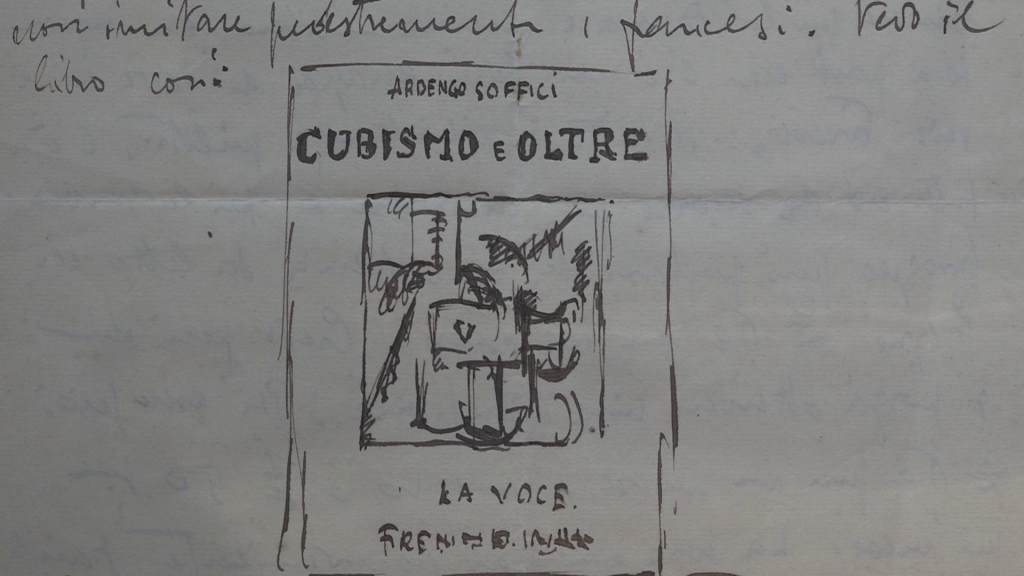 non imitare pedestremente i francesi. Vedo il
libro così:
ARDENGO SOFFICI
CUBISMO E OLTRE
LA VOCE.